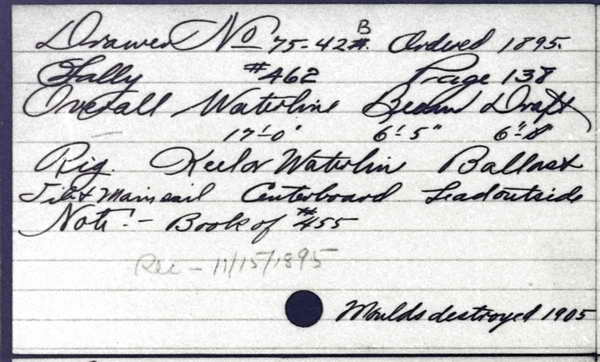 Drawer No 75-42B. Ordered 1895.
Sally #462 Page 138
Overall Waterline Beam Draft
17'-0" 6'-5" 6"-8
Rig. Keel or Waterline Ballast
Jib & Mainsail Centerboard Lead outside
Note:- Book of #455
Rec - 11/15/1895
Moulds destroyed 1905